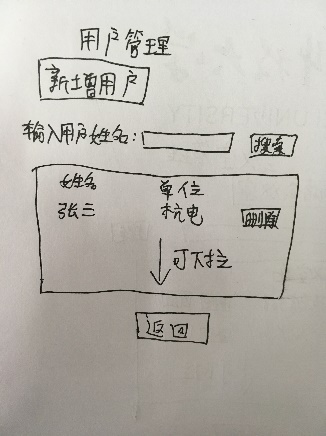 用户管理
新增用户
输入用户姓名: 搜索
姓名 单位
张三 杭电 删除
可下拉
返回